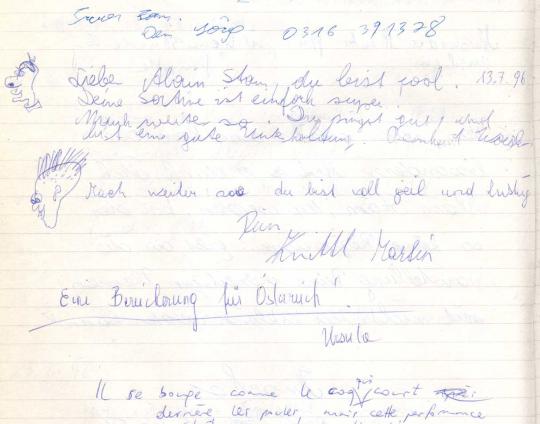 Dein Jörg 0316 391328
Lieber Alain Stom, du bist cool. 13.7.96
Deine Sortine ist einfach super.
Mach weiter so. Du singst gut und
bist eine gute Unterhaltung.
Mach weiter soo du bist voll geil und lustig
Dein
Martin
Eine Bereicherung für Österreich!
Ursula
Il se bouge comme le coq qui court
derrière les poules, mais cette performance